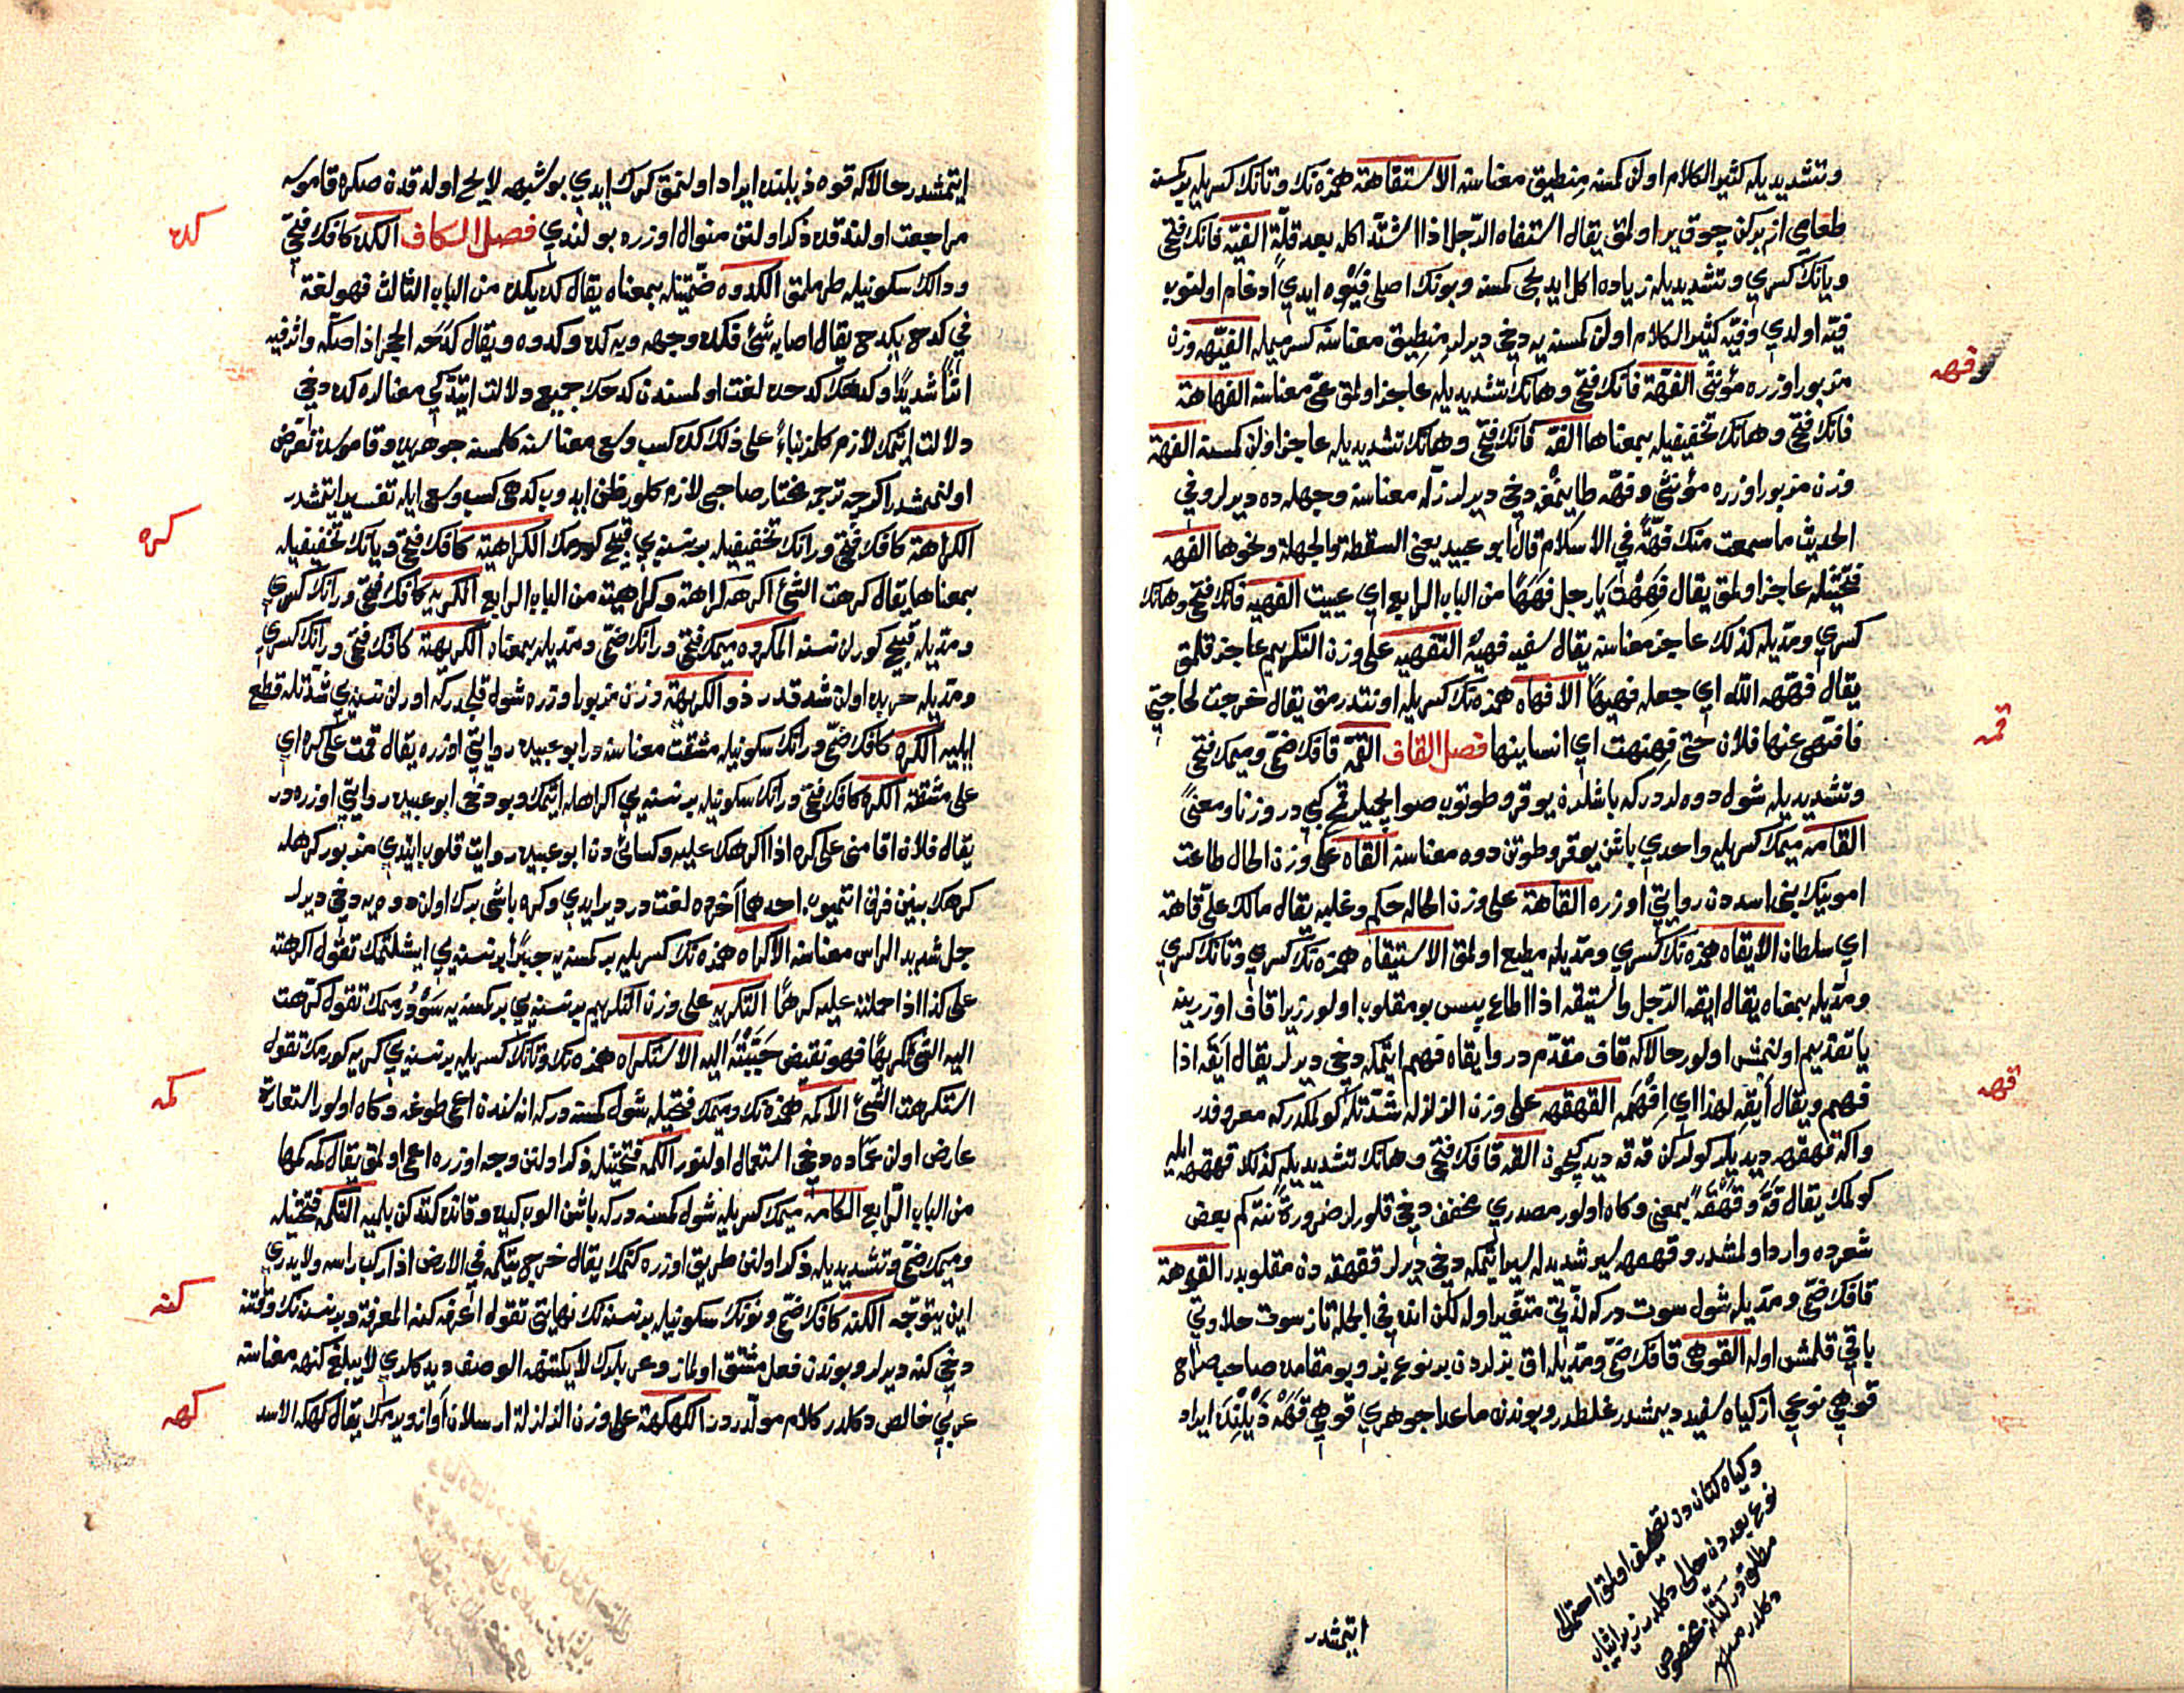 وتشديديله كثير الكلام اولن كمسنه منطيق معناسنه الاستفاهة همزه نك وتانك كسريله بر كمسنه
طعامي از يركن چوق ير اولمق يقال استفاه الرجل اذا اشتد اكله بعد قلة الفيه فانك فتحي
ويانك كسري وتشديديله زياده اكل ايديجي كمسنه وبونك اصلي فيوه ايدي ادغام اولنوب
فيه اولدي وفيه كثير الكلام اولن كمسنه يه دخي ديرلر منطيق معناسنه كسر ميمله الفيهه وزن
مزبور اوزره مؤنثي الفهة فانك فتحي وهانك تشديديله عاجز اولمق عي معناسنه الفهاهة
فانك فتحي وهانك تخفيفيله بمعناها الفه فانك فتحي وهانك تشديديله عاجز اولن كمسنه الفهة
وزن مزبور اوزره مؤنثي وفهه طايمغه دخي ديرلر زله معناسنه وجهله ده ديرلر وفي
الحديث ما سمعت منك فهة في الاسلام قال ابو عبيد يعني السقطة والجهلة ونحوها الفهه
فتحتينله عاجز اولمق يقال فههت يا رجل فههًا من الباب الرابع اي عييت الفهيه فانك فتحي وهانك
كسري ومديله كذلك عاجز معناسنه يقال سفيه فهيه التفهيه على وزن التكريم عاجز قلمق
يقال فههه الله اي جعله فهيهًا الافهاه همزه نك كسريله اونتدرمق يقال خرجت لحاجتي
فافهني عنها فلان حتى فههت اي انسانيها فصل القاف القمه قافك ضمي وميمك فتحي
وتشديديله شول دوه لردر كه باشلرن يوقرو طوتوب صو ايچميلر قمح كبي در وزنا ومعنى
القامه ميمك كسريله واحدي باشن يوقرو طوتن دوه معناسنه القاه على وزن الحال طاعت
امونك بني اسددن روايتي اوزره القاهة على وزن الحاله حكم وغلبه يقال مالك علي قاهة
اي سلطان الايقاه همزه نك كسري ومديله مطيع اولمق الاستيقاه همزه نك كسري وتانك كسري
ومديله بمعناه يقال ايقه الرجل واستيقه اذا اطاع پس بو مقلوب اولور زيرا قاف اوزرينه
يا تقديم اولنمش اولور حالا كه قاف مقدم در وايقاه فهم ايتمكه دخي ديرلر يقال ايقه اذا
فهم ويقال ايقه لهذا اي افهمه القهقهه على وزن الزلزله شدتله كولمكدر كه معروفدر
واكا قهقهه ديديلر كولركن قه قه ديديكيچون القه قافك فتحي وهانك تشديديله كذلك قهقهه ايله
كولمك يقال قه وقهقه بمعنى وكاه اولور مصدري مخفف دخي قلورلر ضرورة نته كم بعض
شعرده وارد اولمشدر وقهمهه سير شديدله سير ايتمكه دخي ديرلر قهقهه دن مقلوبدر القوهة
قافك ضمي ومديله شول سوت در كه لذتي متغير اوله لكن انده في الجمله تاز سوت حلاوتي
باقي قلمش اوله القوهي قافك ضمي ومديله اق بزلردن بر نوع بز وبو مقامده صاحب صراح
قوهي نوعي از كياه سفيد ديمشدر غلطدر وبوندن ماعدا جوهري قوهي قهه ذيلنده ايراد
وكياه كتاندن تصحيف اولمق احتمالي
نوع بعددن خالي دكلدر زيرا ثياب
مطلق در كتانه مخصوص
دكلدر منه
ايتمشدر
قهه
قمه
قهه
ايتمشدر حالا كه قوه ذيلنده ايراد اولنمق كرك ايدي بو شبهه لايح اولدقدن صكره قاموسه
مراجعت اولندقده ذكر اولنن منوال اوزره بولندي فصل الكاف الكده كافك فتحي
ودالك سكونيله طرملمق الكدوه ضمتينله بمعناه يقال كده يكده من الباب الثالث فهو لغة
في كدح يكدح يقال اصابه شئ فكده وجهه وبه كده وكدوه ويقال كدهه الحجر اذا صكه واثر فيه
اثرًا شديدًا وكدهك كدحه لغت اولمسندن كدحك جميع دلالت ايتدكي معنالره كده دخي
دلالت ايتمك لازم كلمز بناءً على ذلك كده كسب وسعي معناسنه كلمسنه جوهريده وقاموسده تعرض
اولنمامشدر اكرچه ترجمه مختار صاحبي لازم كلور ظن ايدوب كدهي كسب وسعي ايله تفسير ايتمشدر
الكراهة كافك فتحي ورانك تخفيفيله بر نسنه يي قبيح كورمك الكراهية كافك فتحي ويانك تخفيفيله
بمعناها يقال كرهت الشئ اكرهه كراهة وكراهية من الباب الرابع الكريه كافك فتحي ورانك كسري
ومديله قبيح كورلن نسنه المكروه ميمك فتحي ورانك ضمي ومديله بمعناه الكريهة كافك فتحي ورانك كسري
ومديله حربده اولن شدتدر ذو الكريهة وزن مزبور اوزره شول قلجدر كه اورلن نسنه يي شدتله قطع
ايليه الكره كافك ضمي ورانك سكونيله مشقت معناسنه در ابو عبيده روايتي اوزره يقال قمت على كره اي
على مشقة الكره كافك فتحي ورانك سكونيله بر نسنه يي اكراهله ايتمك وبو دخي ابو عبيده روايتي اوزره در
يقال فلان اقامني على كره اذا اكرهك عليه وكسائي دن ابو عبيده روايت قلوب ايتدي مزبور كرهله
كرهك بيني فرق اتميوب احدهما آخره لغت در دير ايدي وكره باشي برك اولن دوه يه دخي ديرلر
جل شديد الراس معناسنه الاكراه همزه نك كسريله بر كمسنه يه جبرًا بر نسنه يي ايشلتمك تقول اكرهته
على كذا اذا حملته عليه كرهًا التكريه على وزن التكريم بر نسنه يي بر كمسنه يه سودرمهمك تقول كرهت
اليه الشئ تكريهًا فهو نقيض حببته اليه الاستكراه همزه نك وتانك كسريله بر نسنه يي كريه كورمك تقول
استكرهت الشئ الاكمه همزه نك وميمك فتحيله شول كمسنه در كه اناسندن اعمى طوغه وكاه اولور استعارة
عارض اولن عماده دخي استعمال اولنور الكمه فتحتينله ذكر اولنن وجه اوزره اعمى اولمق يقال كمه كمها
من الباب الرابع الكامه ميمك كسريله شول كمسنه در كه باشن الوب كيده وقانده كتدكن بلميه التكمه فتحتينله
وميمك ضمي وتشديديله ذكر اولنن طريق اوزره كتمك يقال خرج يتكمه في الارض اذا ركب راسه ولا يدري
اين يتوجه الكنه كافك ضمي ونونك سكونيله بر نسنه نك نهايتي تقول اعرفه كنه المعرفة وبر نسنه نك وقتنه
دخي كنه ديرلر وبوندن فعل مشتق اولماز وعربلرك لا يكتنهه الوصف ديدكلري لا يبلغ كنهه معناسنه
عربي خالص دكلدر كلام مولد در الكهكهة على وزن الزلزلة ارسلان آواز ويرمك يقال كهكه الاسد
كده
كره
كمه
كنه
كهه